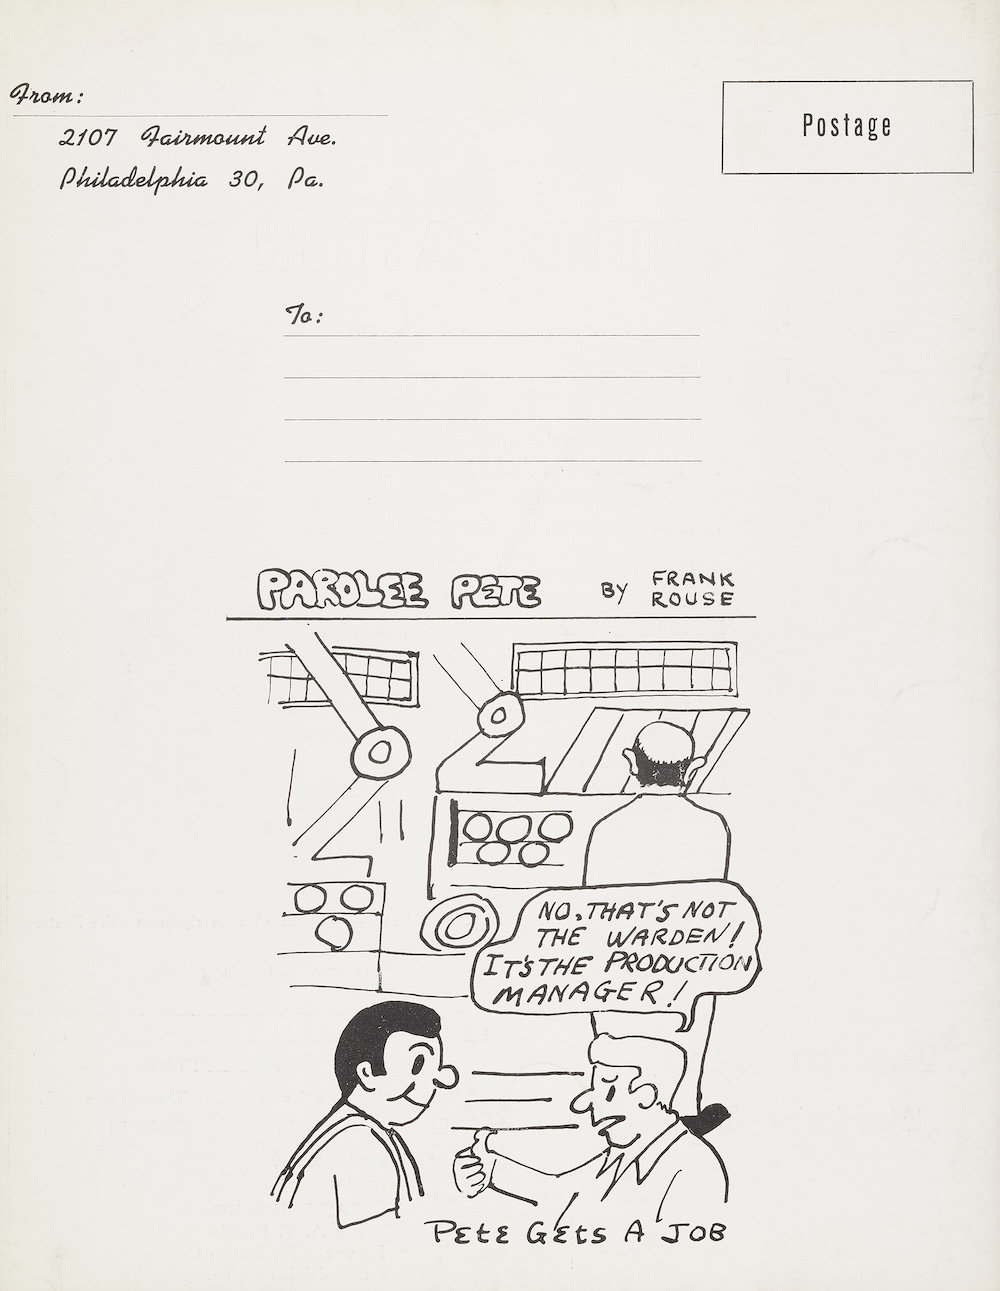 From:
2107 Fairmount Ave.
Philadelphia 30, Pa.
Postage
To:
PAROLEE PETE BY FRANK ROUSE
NO, THAT'S NOT
THE WARDEN!
IT'S THE PRODUCTION
MANAGER!
PETE GETS A JOB